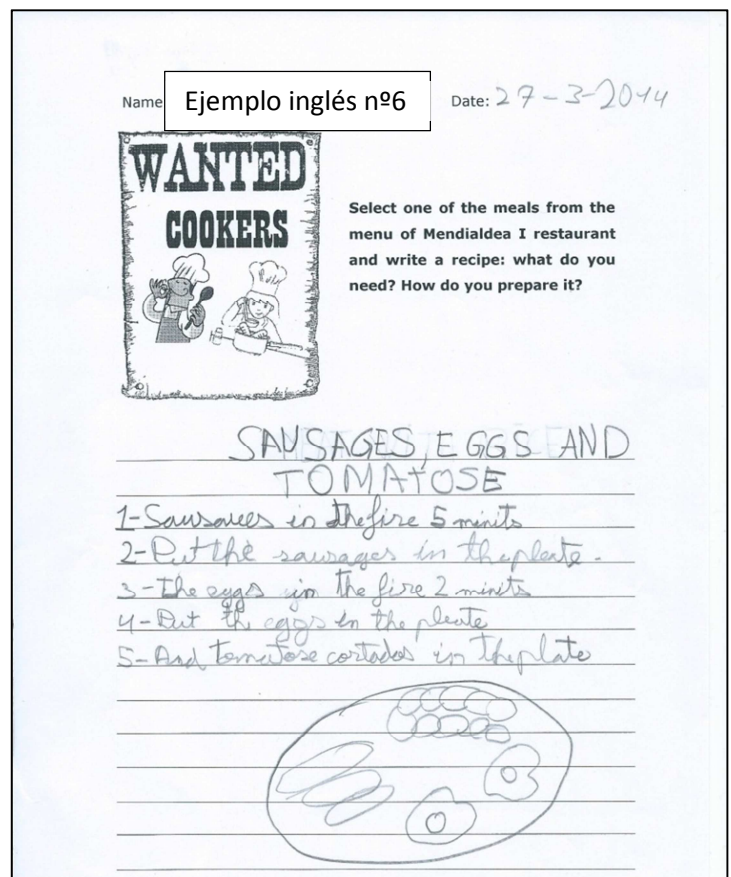 Name Ejemplo inglés nº6 Date: 27-3-2014
WANTED
COOKERS
Select one of the meals from the
menu of Mendialdea I restaurant
and write a recipe: what do you
need? How do you prepare it?
SAUSAGES, EGGS AND
TOMATOSE
1-Sausavees in the fire 5 minits
2-Put the sausages in the pleate.
3-The eggs in the fire 2 minits
4-Put the eggs in the pleate
5-And tomatose cortados in the plate